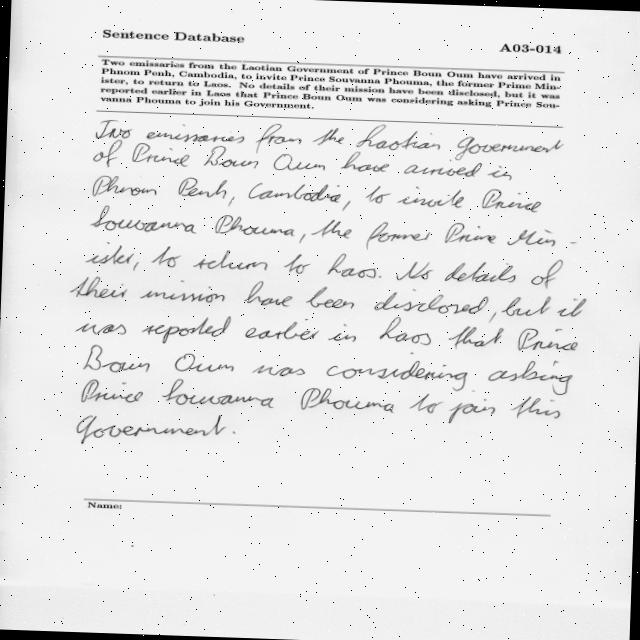 Sentence Database
A03-014
Two emissaries from the Laotian Government of Prince Boun Oum have arrived in
Phnom Penh, Cambodia, to invite Prince Souvanna Phouma, the former Prime Min-
ister, to return to Laos. No details of their mission have been disclosed, but it was
reported earlier in Laos that Prince Boun Oum was considering asking Prince Sou-
vanna Phouma to join his Government.
Two emissaries from the Laotian Government
of Prince Boun Oum have arrived in
Phnom Penh, Cambodia, to invite Prince
Souvanna Phouma, the former Prime Min-
ister, to return to Laos. No details of
their mission have been disclosed, but it
was reported earlier in Laos that Prince
Boun Oum was considering asking
Prince Souvanna Phouma to join this
Government.
Name: